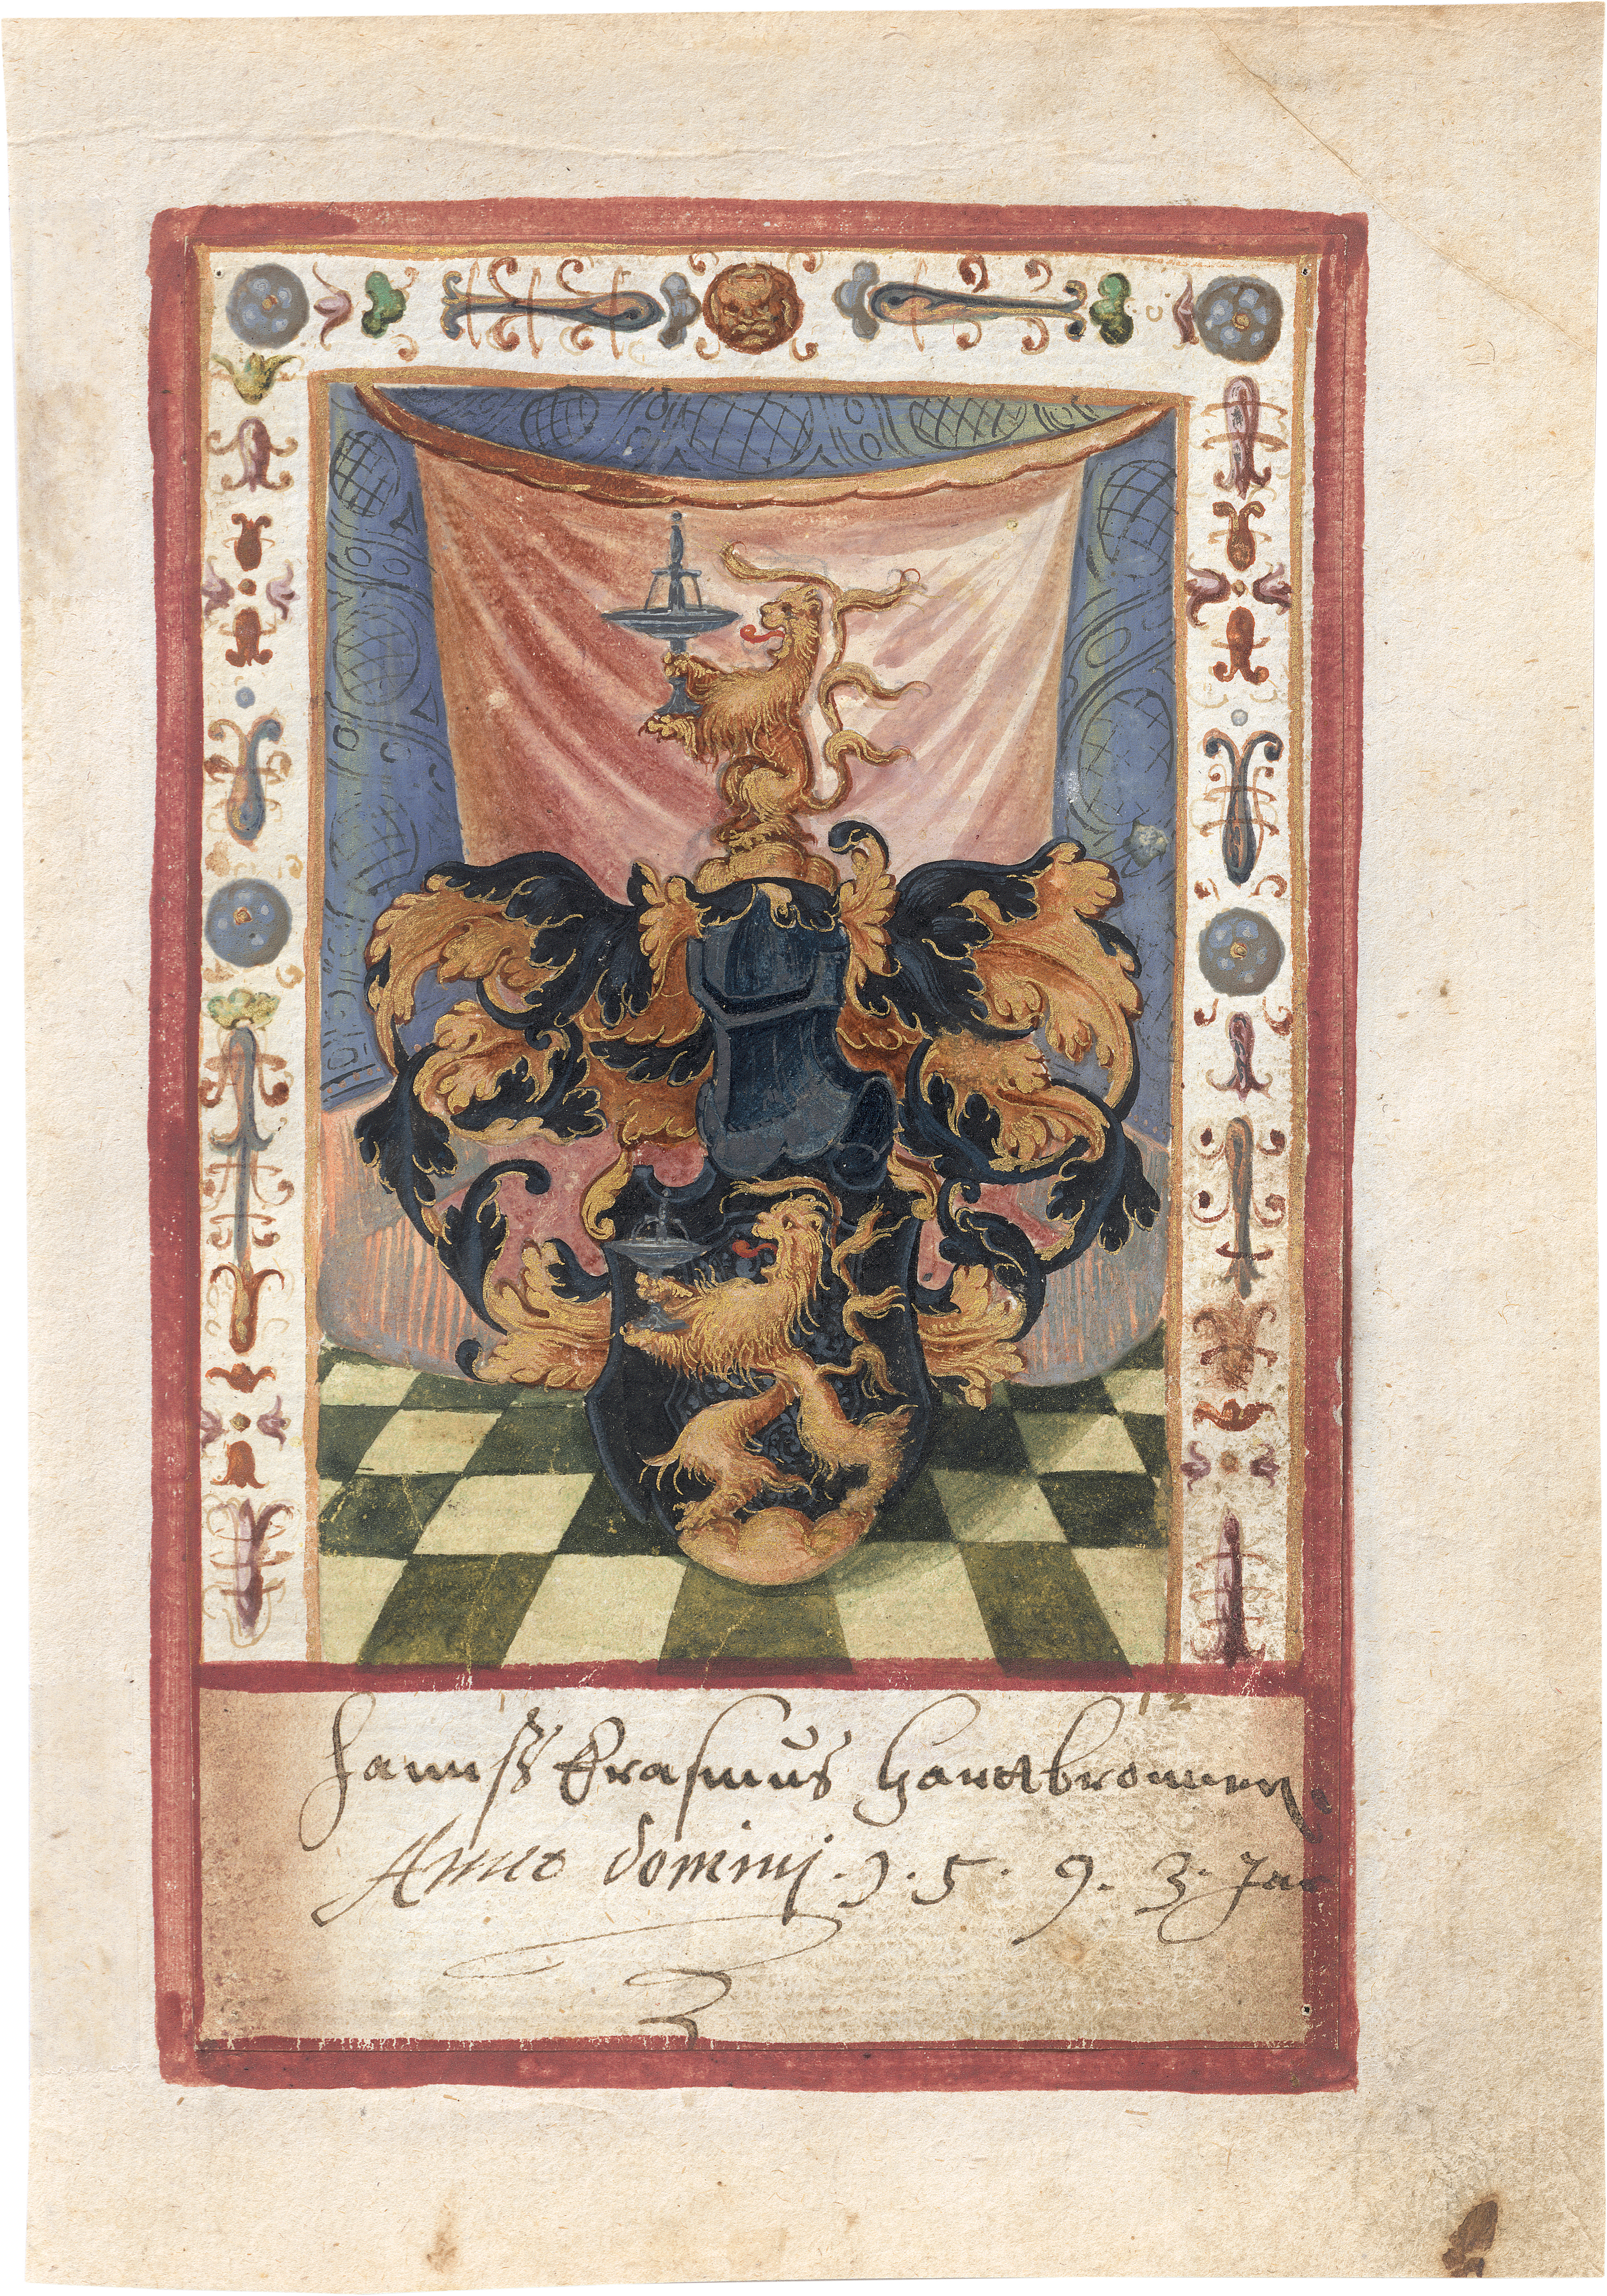 12
Hannß Erasmus Hartbronner.
Anno dominj. 1. 5. 9. 3. Jar